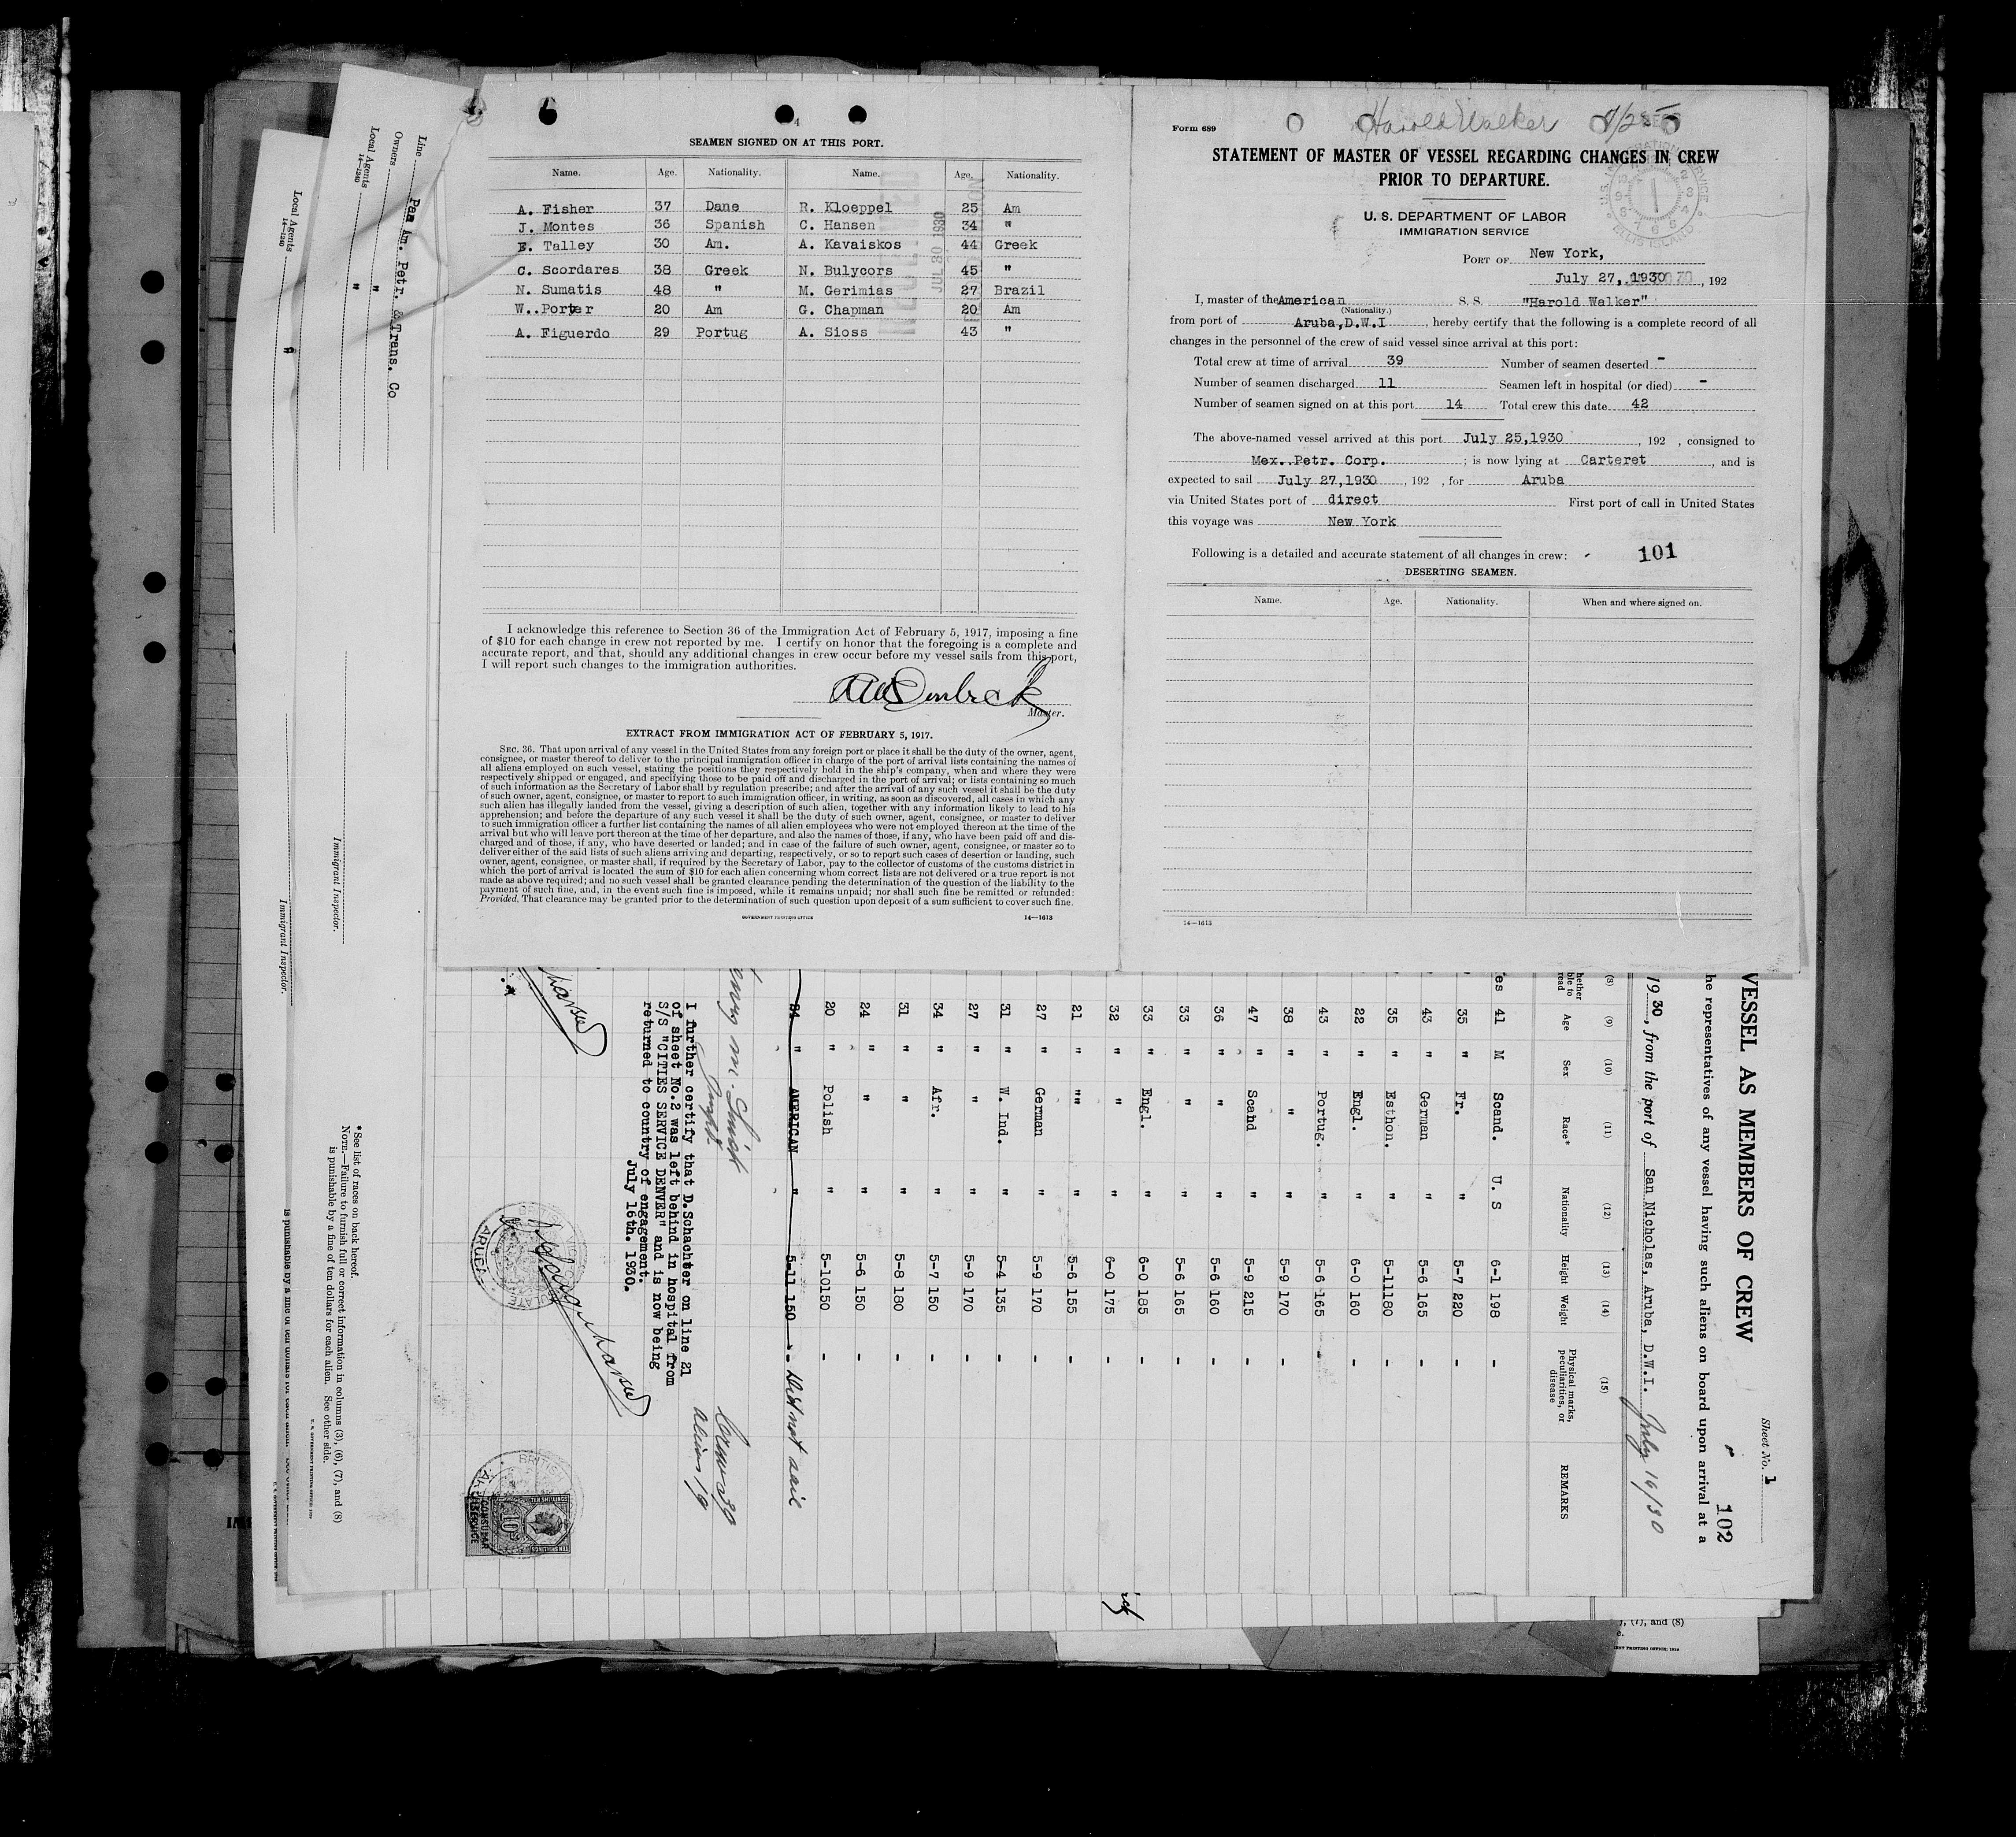 4
SEAMEN SIGNED ON AT THIS PORT.
Name. Age. Nationality. Name. Age. Nationality.
A. Fisher 37 Dane R. Kloeppel 25 Am
J. Montes 36 Spanish C. Hansen 34 "
E. Talley 30 Am. A. Kavaiskos 44 Greek
C. Scordares 38 Greek N. Bulycors 45 "
N. Sumatis 48 " M. Gerimias 27 Brazil
W. Porter 20 Am G. Chapman 20 Am
A. Figuerdo 29 Portug A. Sioss 43 "
JUL 28 1930
I acknowledge this reference to Section 36 of the Immigration Act of February 5, 1917, imposing a fine
of $10 for each change in crew not reported by me. I certify on honor that the foregoing is a complete and
accurate report, and that, should any additional changes in crew occur before my vessel sails from this port,
I will report such changes to the immigration authorities.
Master.
EXTRACT FROM IMMIGRATION ACT OF FEBRUARY 5, 1917.
SEC. 36. That upon arrival of any vessel in the United States from any foreign port or place it shall be the duty of the owner, agent,
consignee, or master thereof to deliver to the principal immigration officer in charge of the port of arrival lists containing the names of
all aliens employed on such vessel, stating the positions they respectively hold in the ship's company, when and where they were
respectively shipped or engaged, and specifying those to be paid off and discharged in the port of arrival; or lists containing so much
of such information as the Secretary of Labor shall by regulation prescribe; and after the arrival of any such vessel it shall be the duty
of such owner, agent, consignee, or master to report to such immigration officer, in writing, as soon as discovered, all cases in which any
such alien has illegally landed from the vessel, giving a description of such alien, together with any information likely to lead to his
apprehension; and before the departure of any such vessel it shall be the duty of such owner, agent, consignee, or master to deliver
to such immigration officer a further list containing the names of all alien employees who were not employed thereon at the time of the
arrival but who will leave port thereon at the time of her departure, and also the names of those, if any, who have been paid off and dis-
charged and of those, if any, who have deserted or landed; and in case of the failure of such owner, agent, consignee, or master so to
deliver either of the said lists of such aliens arriving and departing, respectively, or so to report such cases of desertion or landing, such
owner, agent, consignee, or master shall, if required by the Secretary of Labor, pay to the collector of customs of the customs district in
which the port of arrival is located the sum of $10 for each alien concerning whom correct lists are not delivered or a true report is not
made as above required; and no such vessel shall be granted clearance pending the determination of the question of the liability to the
payment of such fine, and, in the event such fine is imposed, while it remains unpaid; nor shall such fine be remitted or refunded:
Provided, That clearance may be granted prior to the determination of such question upon deposit of a sum sufficient to cover such fine.
GOVERNMENT PRINTING OFFICE 14—1613
Harold Walker
Form 689
STATEMENT OF MASTER OF VESSEL REGARDING CHANGES IN CREW
PRIOR TO DEPARTURE.
U. S. DEPARTMENT OF LABOR
IMMIGRATION SERVICE
ELLIS ISLAND
PORT OF New York,
July 27, 1930, 192
I, master of the American S. S. "Harold Walker"
(Nationality.)
from port of Aruba,D.W.I, hereby certify that the following is a complete record of all
changes in the personnel of the crew of said vessel since arrival at this port:
Total crew at time of arrival 39 Number of seamen deserted -
Number of seamen discharged 11 Seamen left in hospital (or died) -
Number of seamen signed on at this port 14 Total crew this date 42
The above-named vessel arrived at this port July 25,1930, 192 , consigned to
Mex. Petr. Corp. ; is now lying at Carteret, and is
expected to sail July 27,1930, 192 , for Aruba
via United States port of direct First port of call in United States
this voyage was New York
Following is a detailed and accurate statement of all changes in crew: 101
DESERTING SEAMEN.
Name. Age. Nationality. When and where signed on.
14—1613
Sheet No. 1
102
VESSEL AS MEMBERS OF CREW
he representatives of any vessel having such aliens on board upon arrival at a
1930, from the port of San Nicholas, Aruba, D.W.I. July 16/30
(8) (9) (10) (11) (12) (13) (14) (15)
hether ble to read Age Sex Race* Nationality Height Weight Physical marks, peculiarities, or disease REMARKS
es 41 M Scand. U. S 6-1 198 -
35 " Fr. " 5-7 220 -
43 " German " 5-6 165 -
35 " Esthon. " 5-11 180 -
22 " Engl. " 6-0 160 -
43 " Portug. " 5-6 165 -
38 " " " 5-9 170 -
47 " Scand " 5-9 215 -
36 " " " 5-6 160 -
33 " " " 5-6 165 -
33 " Engl. " 6-0 185 -
32 " " " 6-0 175 -
21 " "" " 5-6 155 -
27 " German " 5-9 170 -
31 " W. Ind. " 5-4 135 -
27 " " " 5-9 170 -
34 " Afr. " 5-7 150 -
31 " " " 5-8 180 -
24 " " " 5-6 150 -
20 " Polish " 5-10 150 -
34 " AMERICAN " 5-11 150 - Did not sail
Crew 39
aliens 19
I further certify that D.Schachter on line 21
of sheet No.2 was left behind in hospital from
S/S "CITIES SERVICE DENVER" and is now being
returned to country of engagement.
July 16th. 1930.
BRITISH
ARUBA
CONSULAR SERVICE
TEN SHILLINGS
10
Line Pan Am. Petr. &Trans. Co
Owners "
Local Agents "
14—1240
Immigrant Inspector.
*See list of races on back hereof.
NOTE.—Failure to furnish full or correct information in columns (3), (6), (7), and (8)
is punishable by a fine of ten dollars for each alien. See other side.
Local Agents "
14—1240
Immigrant Inspector.
is punishable by a fine of ten dollars for each alien.
, (7), and (8)